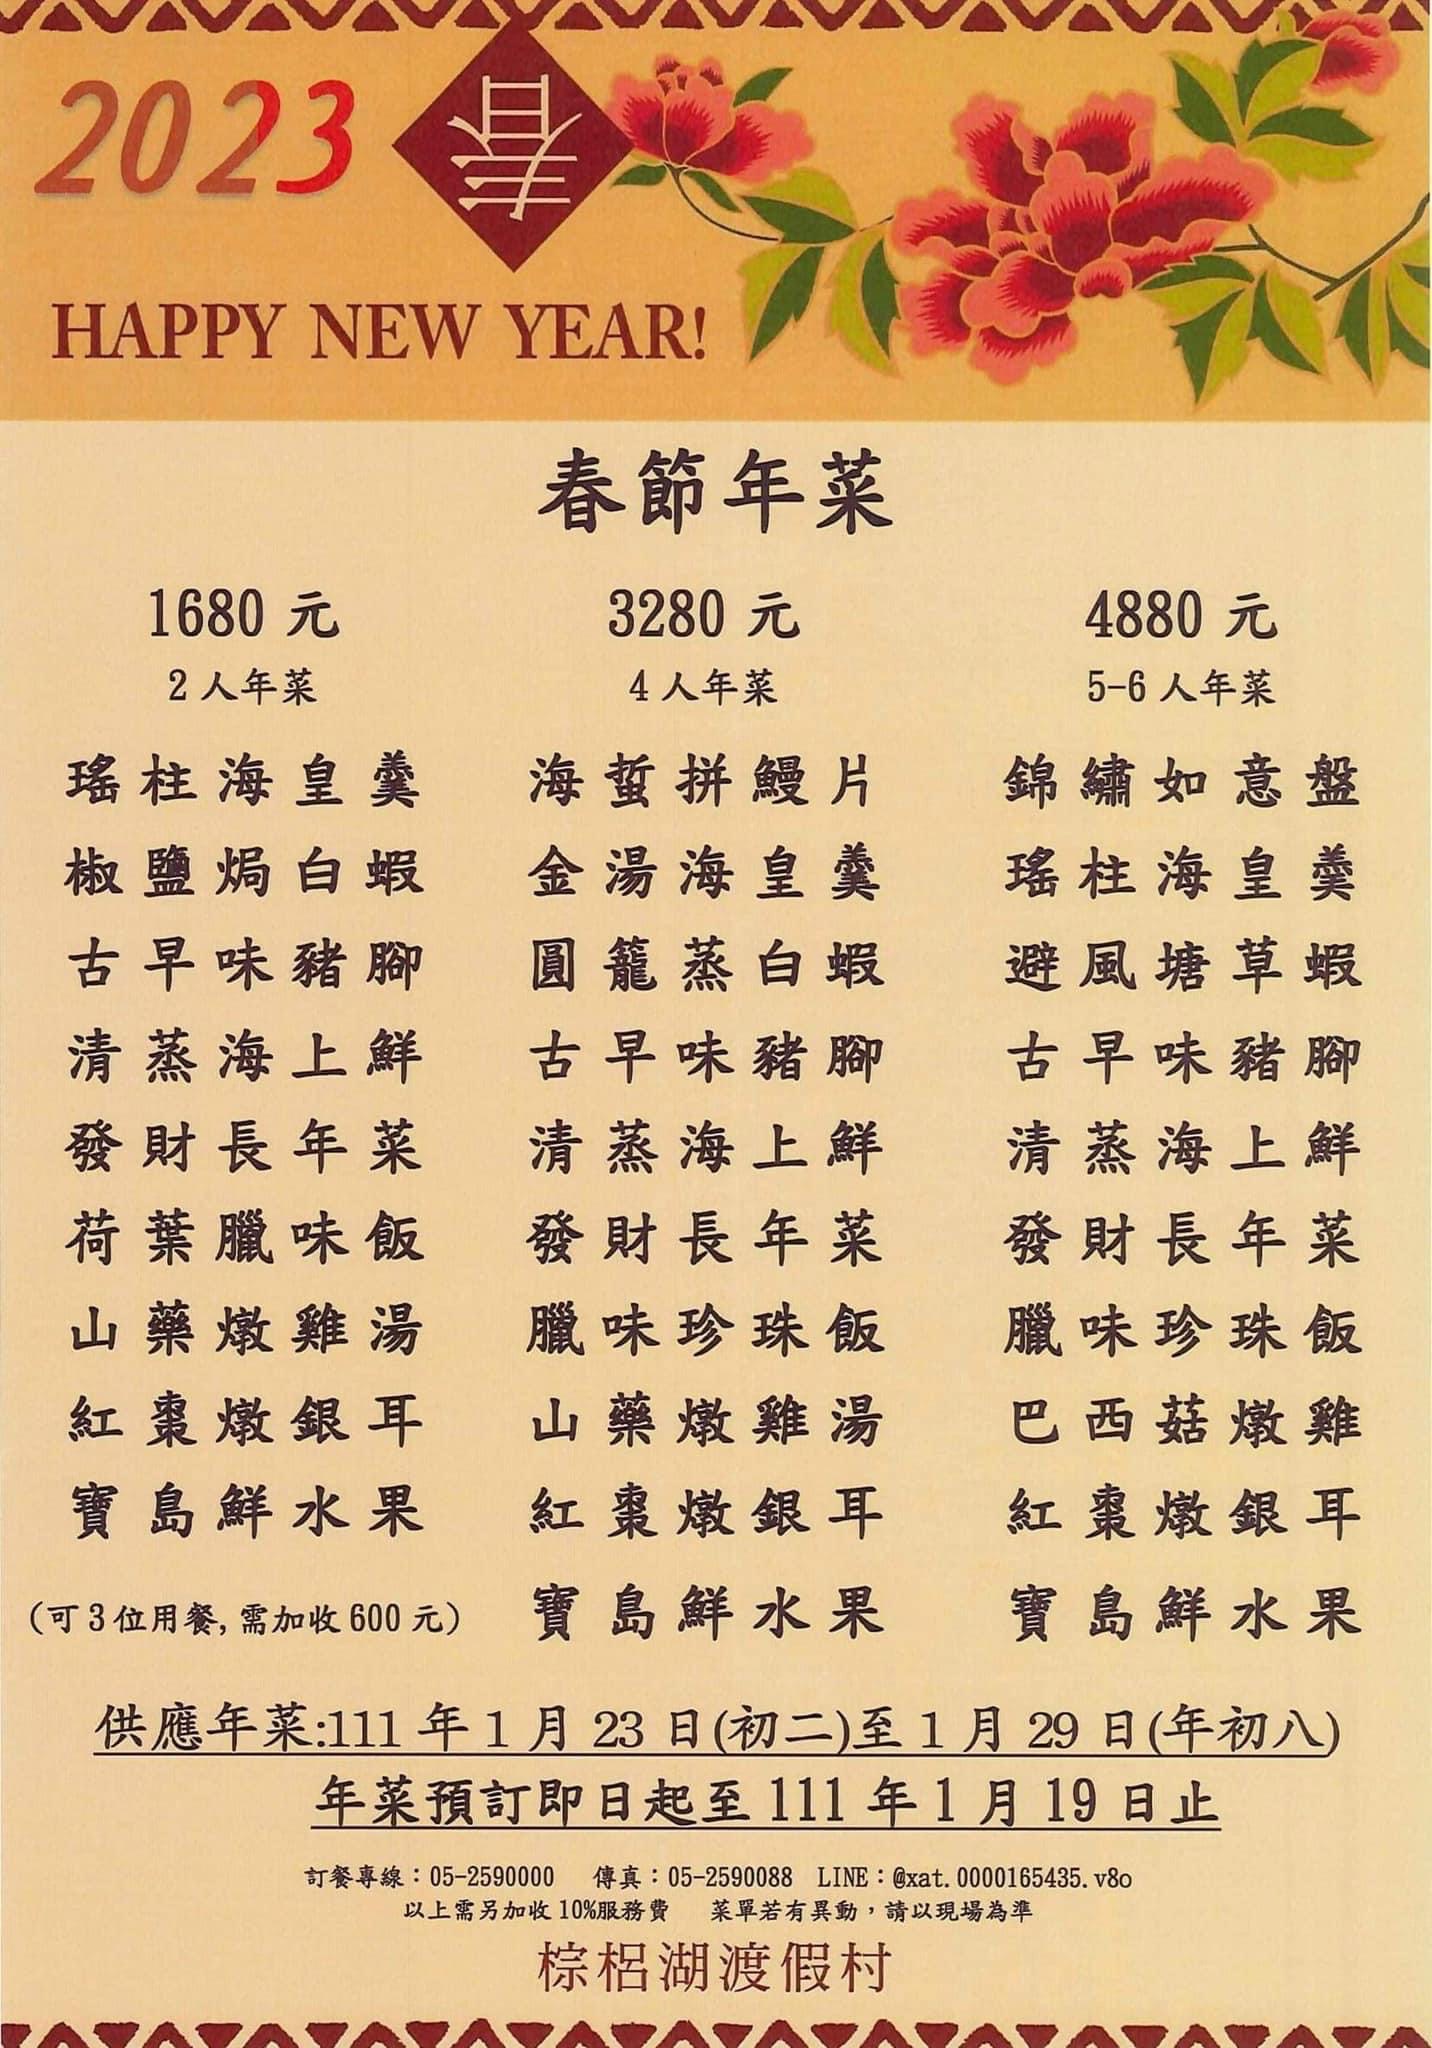 2023
春
HAPPY NEW YEAR!
春節年菜
1680 元
2 人年菜
瑤柱海皇羹
椒鹽焗白蝦
古早味豬腳
清蒸海上鮮
發財長年菜
荷葉臘味飯
山藥燉雞湯
紅棗燉銀耳
寶島鮮水果
(可 3 位用餐,需加收 600 元)
3280 元
4 人年菜
海蜇拼鰻片
金湯海皇羹
圓籠蒸白蝦
古早味豬腳
清蒸海上鮮
發財長年菜
臘味珍珠飯
山藥燉雞湯
紅棗燉銀耳
寶島鮮水果
4880 元
5-6 人年菜
錦繡如意盤
瑤柱海皇羹
避風塘草蝦
古早味豬腳
清蒸海上鮮
發財長年菜
臘味珍珠飯
巴西菇燉雞
紅棗燉銀耳
寶島鮮水果
供應年菜:111 年 1 月 23 日(初二)至 1 月 29 日(年初八)
年菜預訂即日起至 111 年 1 月 19 日止
訂餐專線：05-2590000 傳真：05-2590088 LINE：@xat.0000165435.v8o
以上需另加收 10%服務費 菜單若有異動，請以現場為準
棕梠湖渡假村